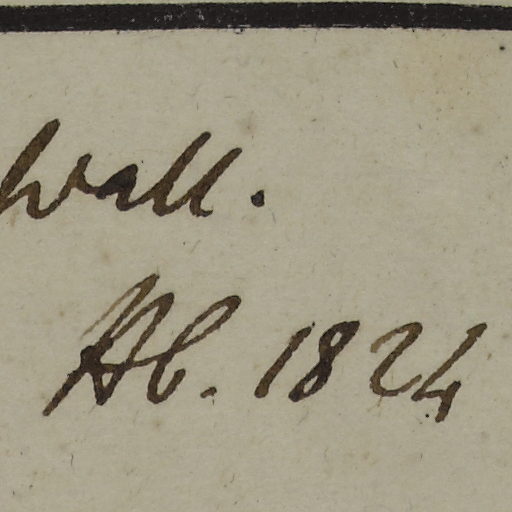 wall.
Ab. 1824